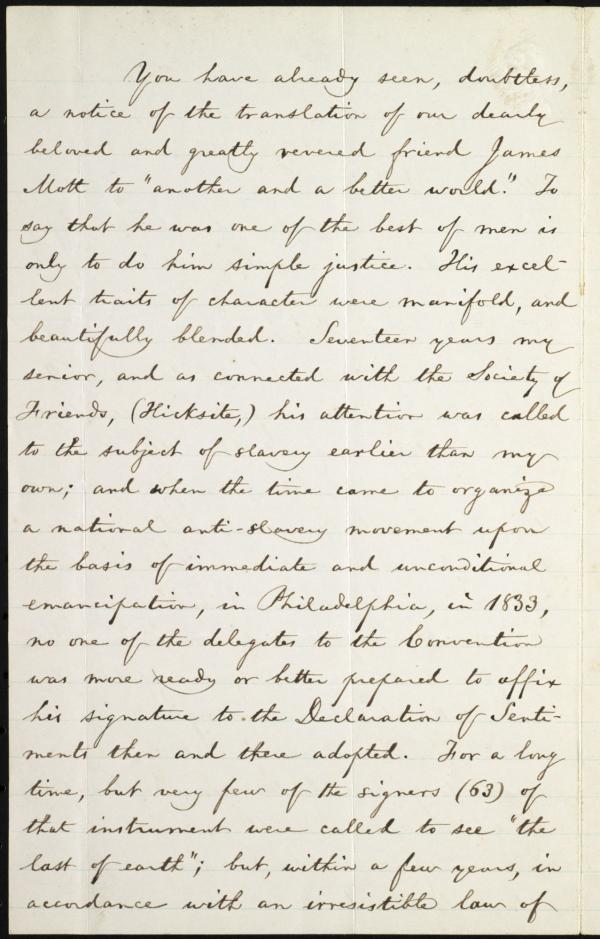 You have already seen, doubtless,
a notice of the translation of our dearly
beloved and greatly revered friend James
Mott to "another and a better world." To
say that he was one of the best of men is
only to do him simple justice. His excel-
lent traits of character were manifold, and
beautifully blended. Seventeen years my
senior, and as connected with the Society of
Friends, (Hicksite,) his attention was called
to the subject of slavery earlier than my
own; and when the time came to organize
a national anti-slavery movement upon
the basis of immediate and unconditional
emancipation, in Philadelphia, in 1833,
no one of the delegates to the Convention
was more ready or better prepared to affix
his signature to the Declaration of Senti-
ments then and there adopted. For a long
time, but very few of the signers (63) of
that instrument were called to see "the
last of earth"; but, within a few years, in
accordance with an irresistible law of